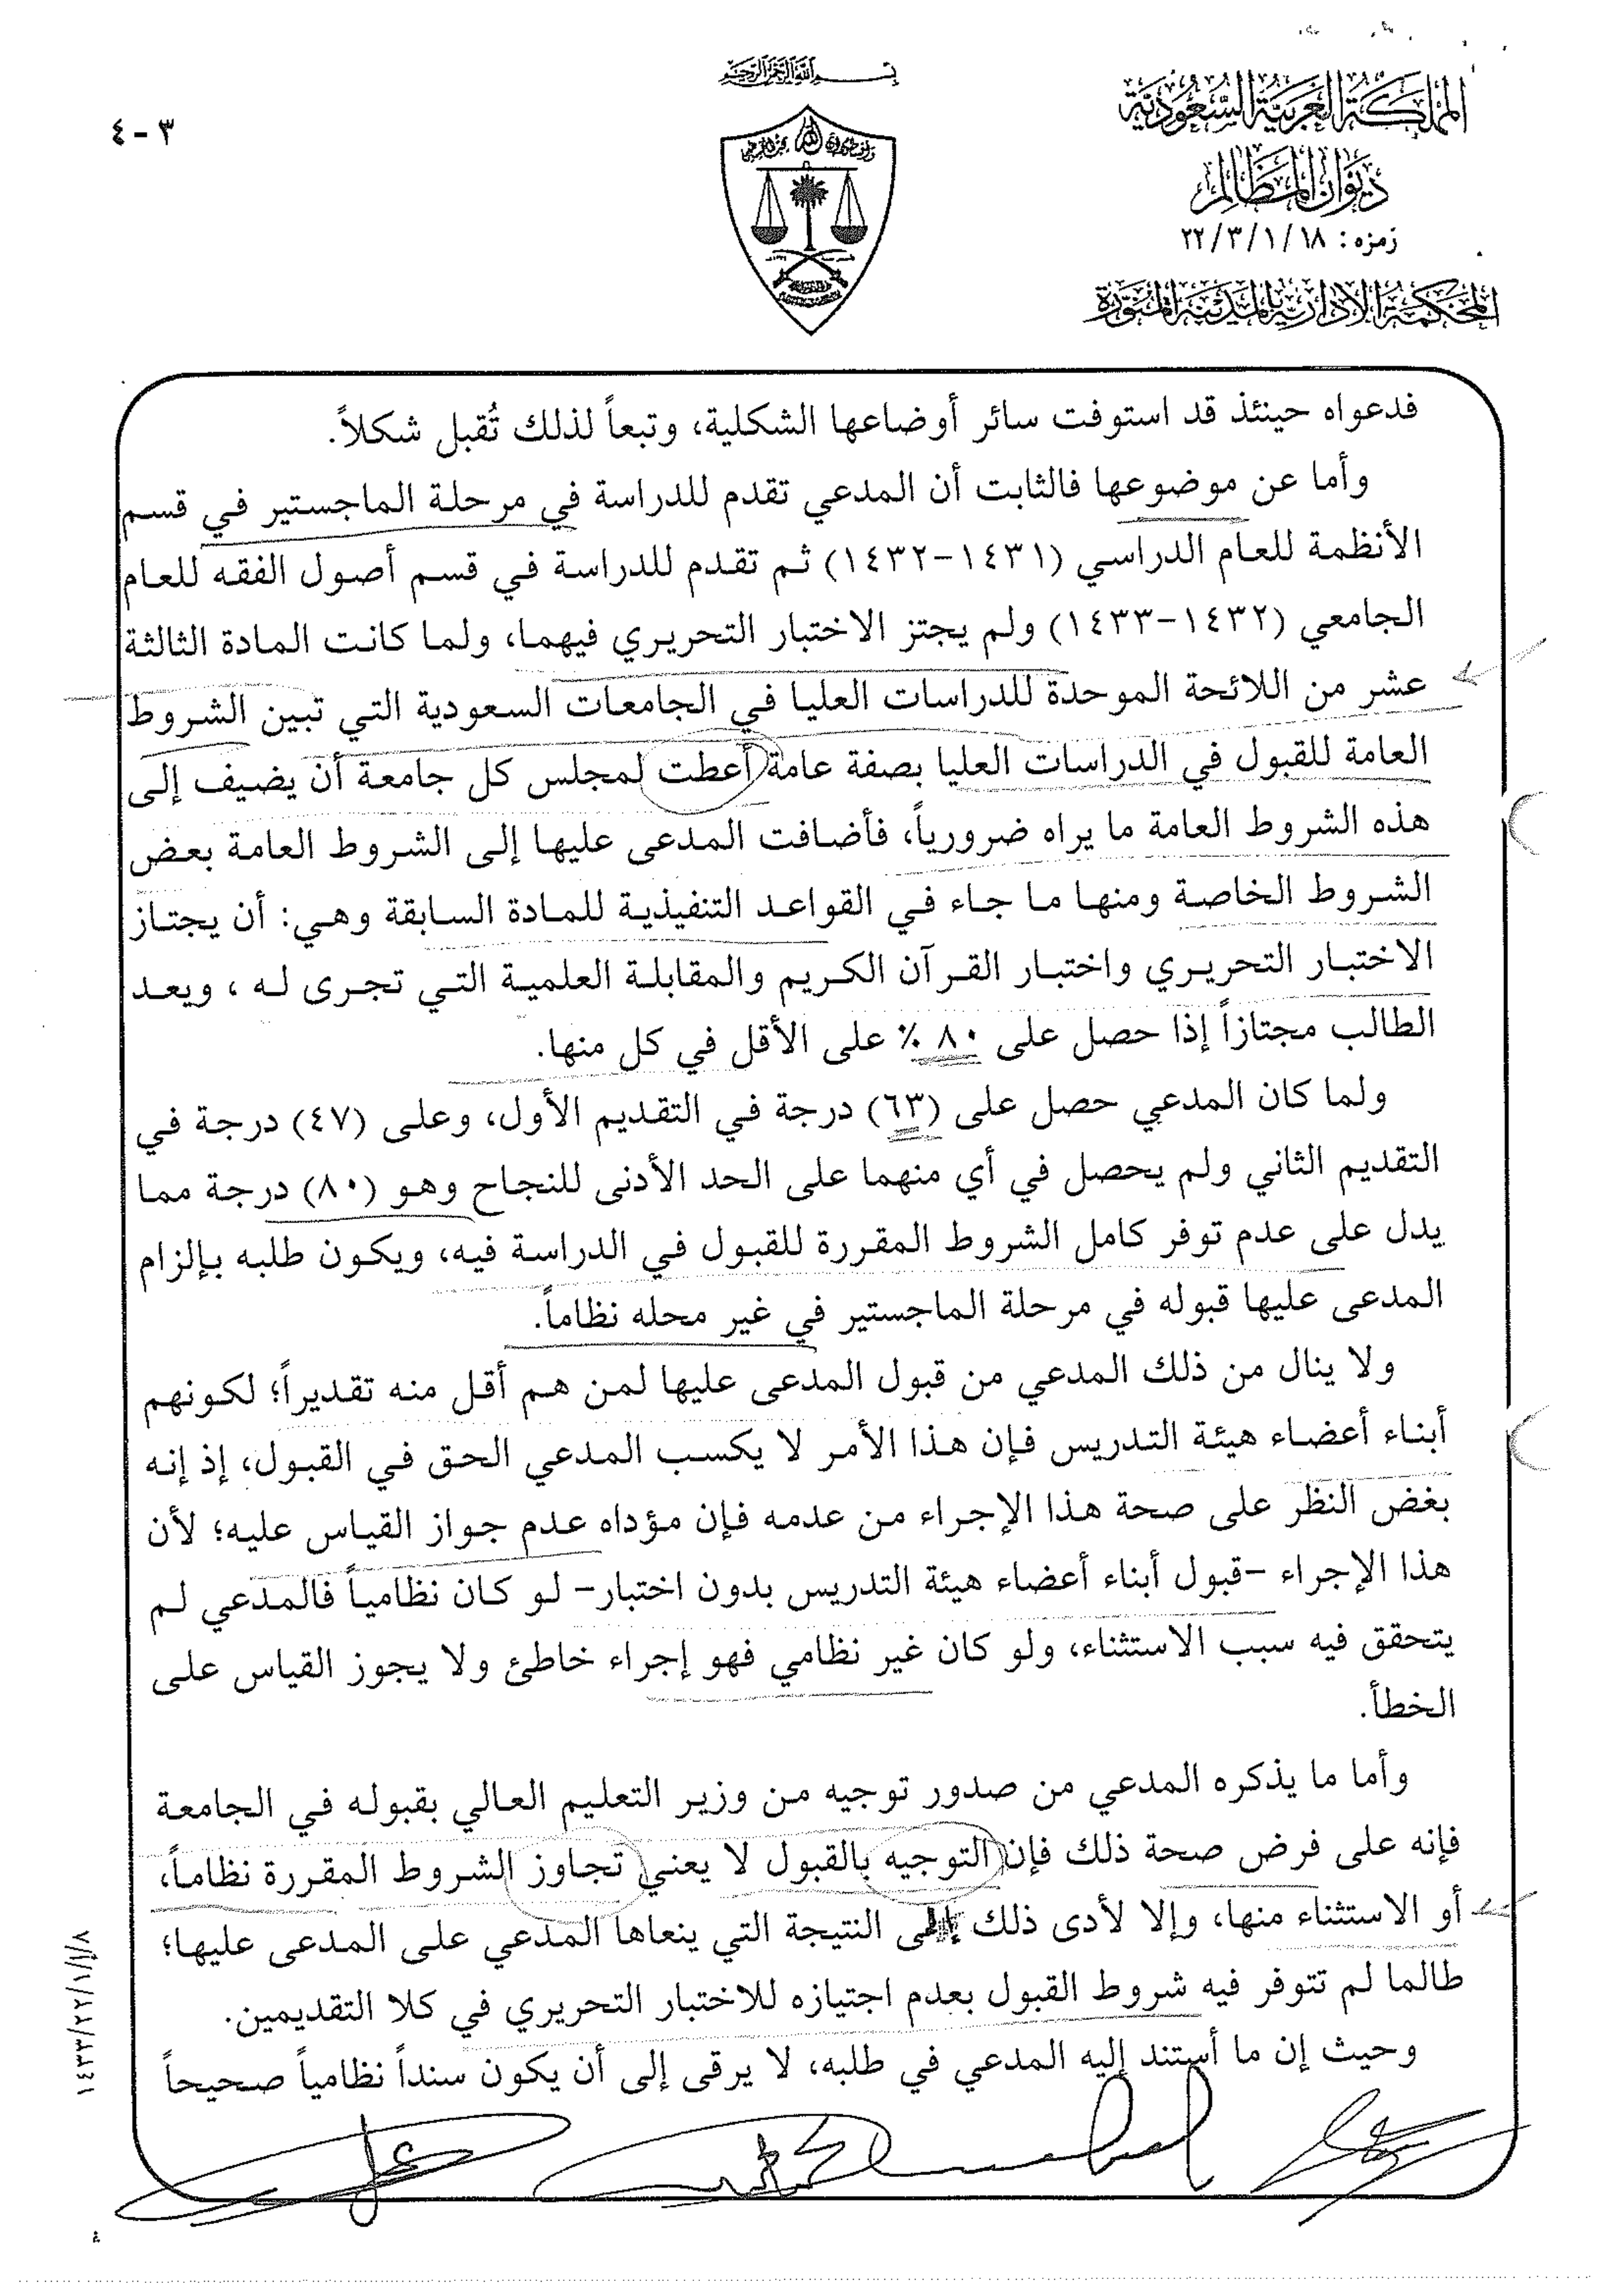 بسم الله الرحمن الرحيم
المملكة العربية السعودية
ديوان المظالم
رمزه: ٢٢/٣/١/١٨
المحكمة الإدارية بالمدينة المنورة
٣ - ٤
فدعواه حينئذ قد استوفت سائر أوضاعها الشكلية، وتبعاً لذلك تُقبل شكلاً.
وأما عن موضوعها فالثابت أن المدعي تقدم للدراسة في مرحلة الماجستير في قسم
الأنظمة للعام الدراسي (١٤٣١-١٤٣٢) ثم تقدم للدراسة في قسم أصول الفقه للعام
الجامعي (١٤٣٢-١٤٣٣) ولم يجتز الاختبار التحريري فيهما، ولما كانت المادة الثالثة
عشر من اللائحة الموحدة للدراسات العليا في الجامعات السعودية التي تبين الشروط
العامة للقبول في الدراسات العليا بصفة عامة أعطت لمجلس كل جامعة أن يضيف إلى
هذه الشروط العامة ما يراه ضرورياً، فأضافت المدعى عليها إلى الشروط العامة بعض
الشروط الخاصة ومنها ما جاء في القواعد التنفيذية للمادة السابقة وهي: أن يجتاز
الاختبار التحريري واختبار القرآن الكريم والمقابلة العلمية التي تجرى له ، ويعد
الطالب مجتازاً إذا حصل على ٨٠ ٪ على الأقل في كل منها.
ولما كان المدعي حصل على (٦٣) درجة في التقديم الأول، وعلى (٤٧) درجة في
التقديم الثاني ولم يحصل في أي منهما على الحد الأدنى للنجاح وهو (٨٠) درجة مما
يدل على عدم توفر كامل الشروط المقررة للقبول في الدراسة فيه، ويكون طلبه بإلزام
المدعى عليها قبوله في مرحلة الماجستير في غير محله نظاماً.
ولا ينال من ذلك المدعي من قبول المدعى عليها لمن هم أقل منه تقديراً؛ لكونهم
أبناء أعضاء هيئة التدريس فإن هذا الأمر لا يكسب المدعي الحق في القبول، إذ إنه
بغض النظر على صحة هذا الإجراء من عدمه فإن مؤداه عدم جواز القياس عليه؛ لأن
هذا الإجراء -قبول أبناء أعضاء هيئة التدريس بدون اختبار- لو كان نظامياً فالمدعي لم
يتحقق فيه سبب الاستثناء، ولو كان غير نظامي فهو إجراء خاطئ ولا يجوز القياس على
الخطأ.
وأما ما يذكره المدعي من صدور توجيه من وزير التعليم العالي بقبوله في الجامعة
فإنه على فرض صحة ذلك فإن التوجيه بالقبول لا يعني تجاوز الشروط المقررة نظاماً،
أو الاستثناء منها، وإلا لأدى ذلك إلى النتيجة التي ينعاها المدعي على المدعى عليها؛
طالما لم تتوفر فيه شروط القبول بعدم اجتيازه للاختبار التحريري في كلا التقديمين.
وحيث إن ما أستند إليه المدعي في طلبه، لا يرقى إلى أن يكون سنداً نظامياً صحيحاً
١٤٣٣/٢٢/١/١/٨